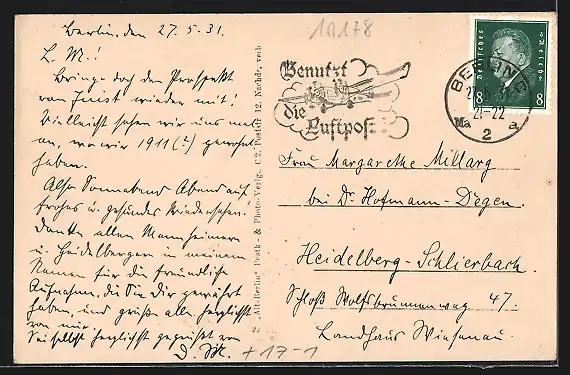 Berlin, den 27.5.31.
L. M.!
Bringe doch den Prospekt
von Juist wieder mit!
Vielleicht sehen wir uns mal
an, wo wir 1911 (?) gewohnt
haben.
Also Sonnabend Abend auf
frohes u. gesundes Wiedersehen!
Danke allen Mannheimern
u. Heidelbergern in meinem
Namen für die freundliche
Aufnahme, die Sie Dir gewährt
haben, und grüße alle herzlichst
von mir.
Sei selbst herzlichst gegrüßt von
D. M.
+17-1
10178
"Alt-Berlin" Postk.- & Photo-Verlg., C 2, Poststr. 12. Nachdr. verb.
Benutzt
die
Luftpost
BERLIN
21-22
Ma a
2
Deutsches Reich
8 8
Frau Margarethe Millarg
bei Dr. Hofmann-Degen.
Heidelberg-Schlierbach.
Schloß Wolfsbrunnenweg 47.
Landhaus Wiesenau.